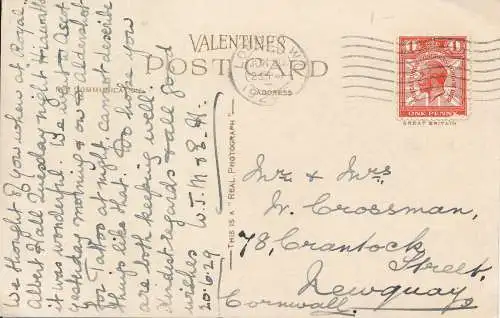 VALENTINES
POSTCARD
COMMUNICATION
ADDRESS
1 1
ONE PENNY
GREAT BRITAIN
THIS IS A "REAL PHOTOGRAPH"
We thought of you when at Royal
Albert Hall Tuesday night Hiawatha
it was wonderful. We went to Ascot
yesterday morning & on to Aldershot
for Tattoo at night, cannot describe
things like that. Do hope you
are both keeping well
Kindest regards & all good
wishes W.J.M & E.H.
20.6.29
Mr & Mrs
W. Crossman,
78, Crantock
Street,
Newquay
Cornwall.